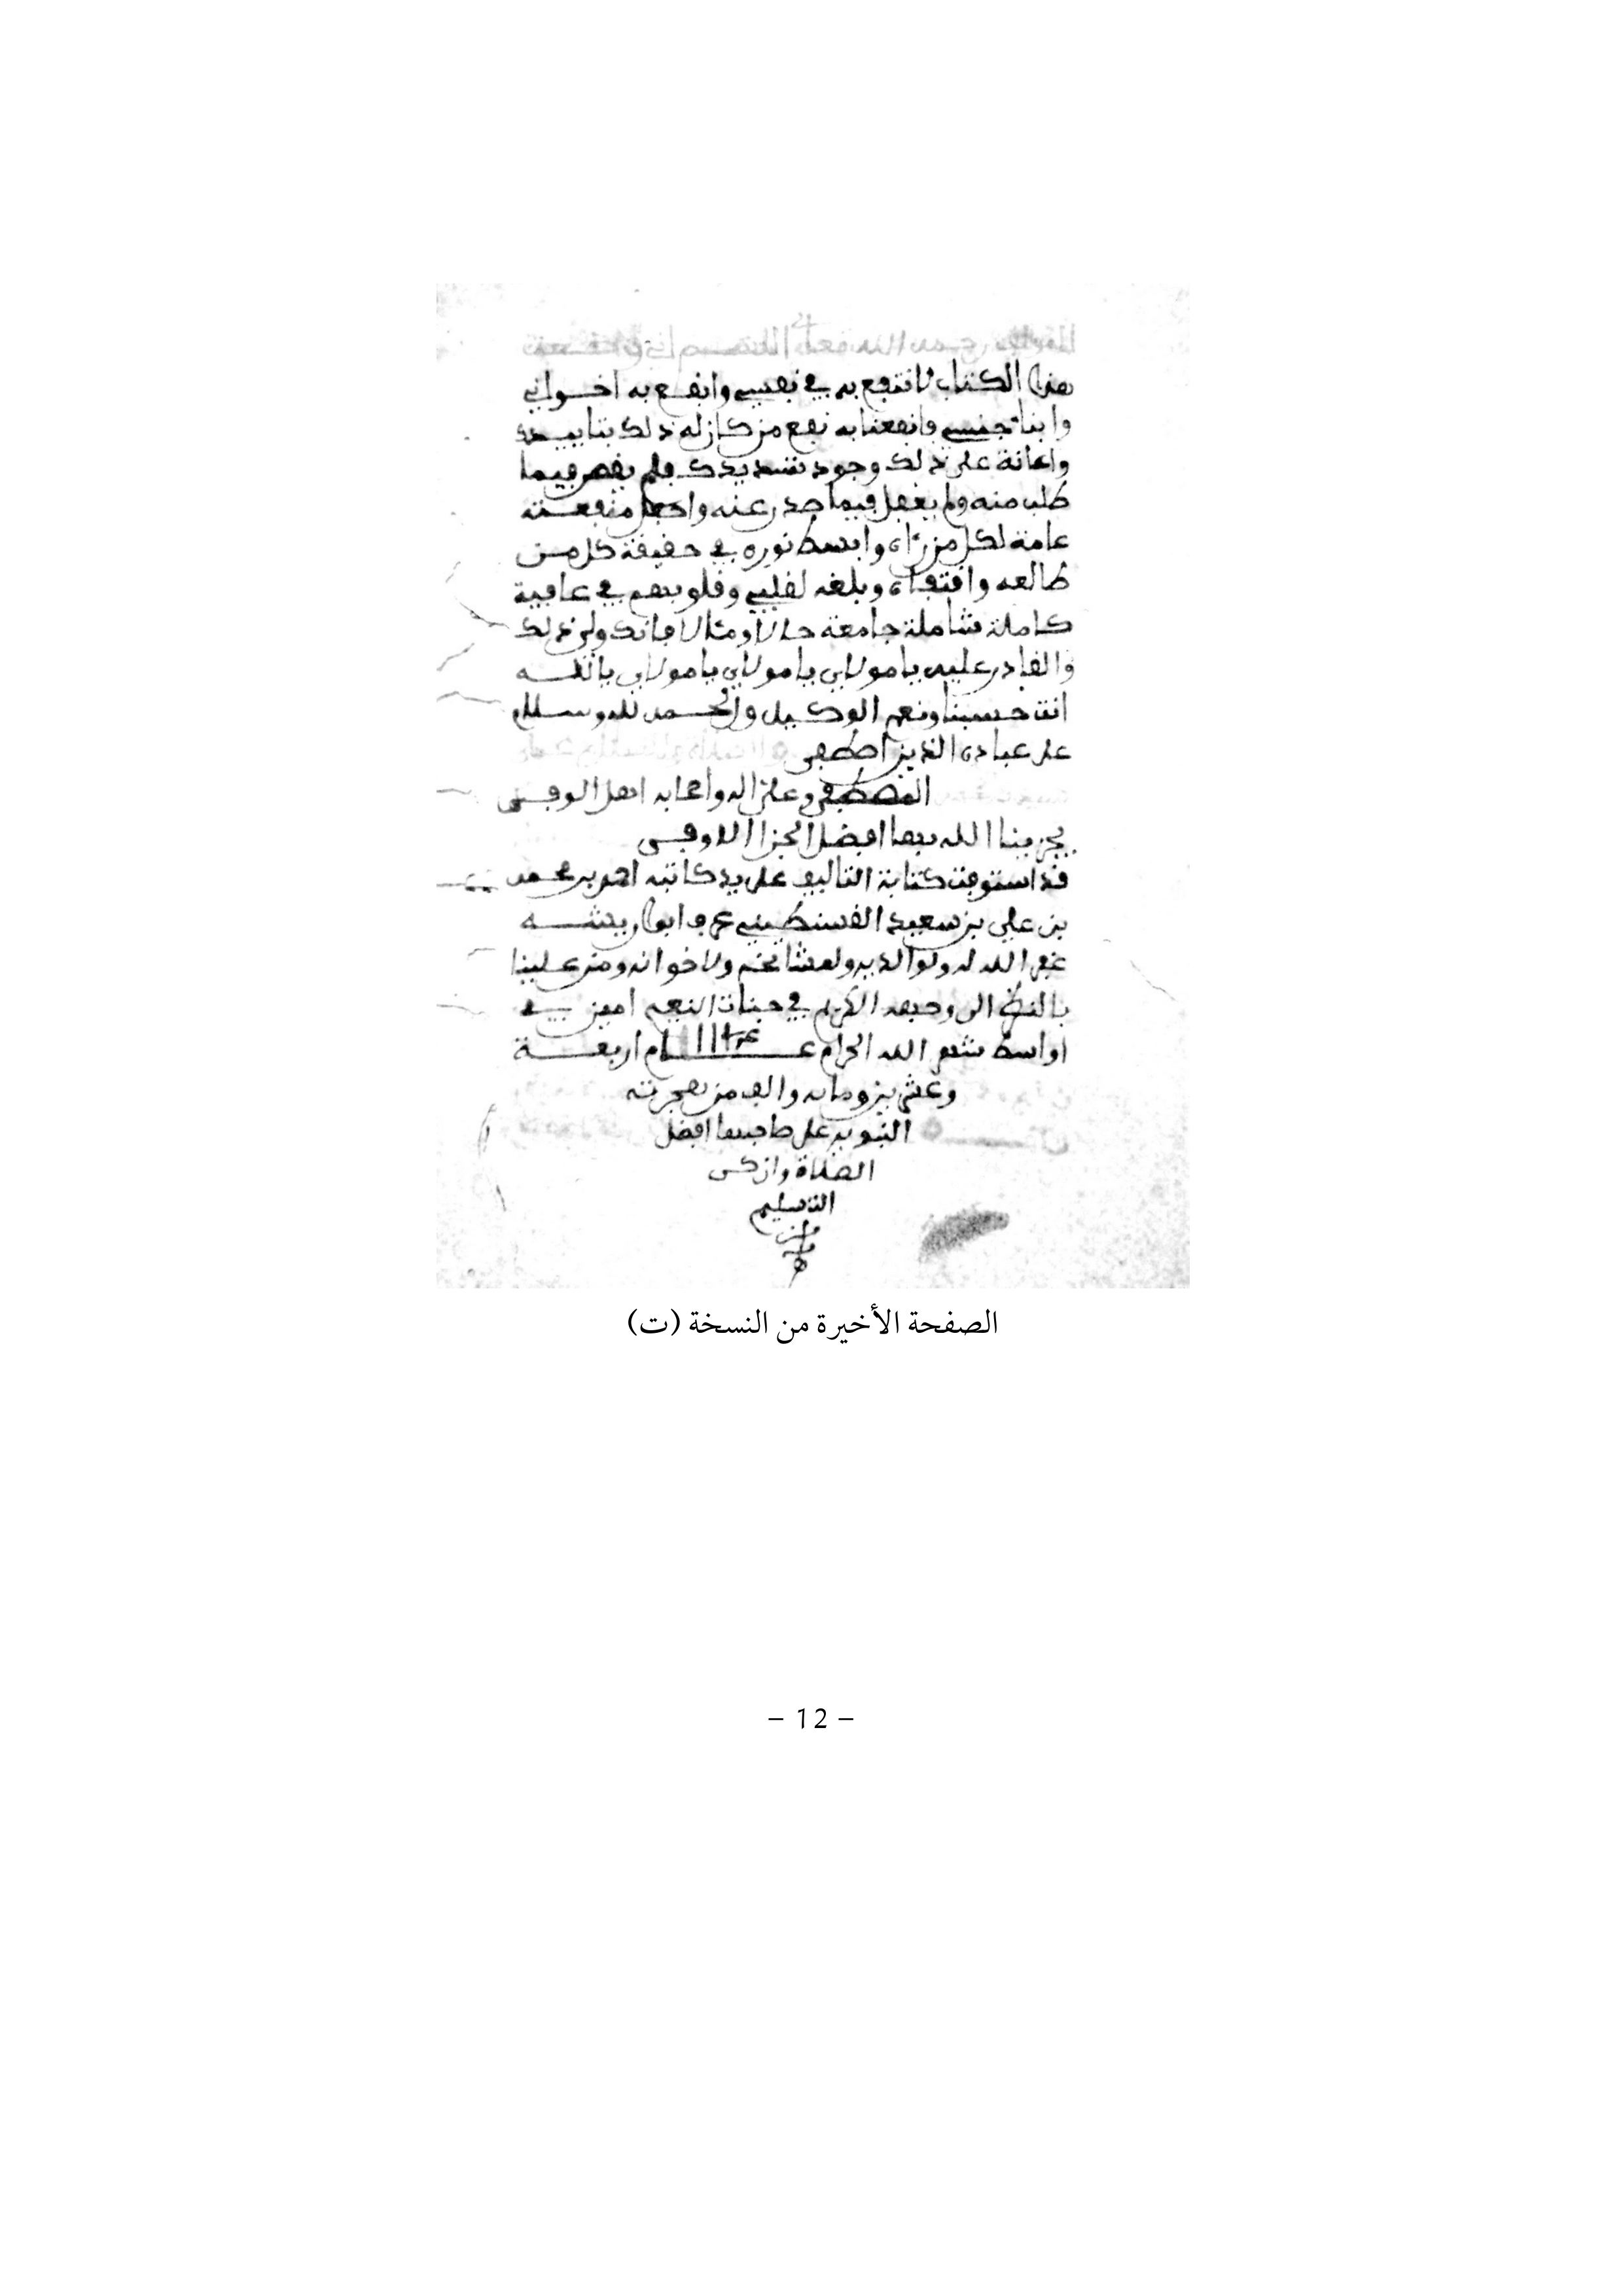 هذا الكتاب لانتفع به في نفسي وانفع به اخواني
وابنا جنسي وانفعنا به نفع من كان له ذلك بتاييدك
واعانة على ذلك وجود تسديدك فلم يقصر فيما
طلب منه ولم يغفل فيما صدر عنه واجعل منفعته
عامة لكل من رءاه وابسط نوره في حقيقة كل من
طالعه واقتفاه وبلغه لقلبي وقلوبهم في عافية
كاملة شاملة جامعة حالا ومئالا فانك ولي ذلك
والقادر عليه يا مولاي يا مولاي يا مولاي يا الله
انت حسبنا ونعم الوكيل والحمد لله وسلام
على عباده الذين اصطفى
المصطفى وعلى اله واصحابه اهل الوفى
يجزينا الله بها افضل الجزا الاوفى
قد استوفت كتابة التاليف على يد كاتبه احمد بن محمد
بن علي بن سعيد القسنطيني عرف ابوا ريشه
غفر الله له ولوالديه ولمشائخه ولاخوانه ومن علينا
بالنظر الى وجهه الكريم في جنات النعيم امين في
اواسط شهر الله الحرام عام 1124 اربعة
وعشرين ومايه والف من هجرته
النبويه على صاحبها افضل
الصلاة وازكى
التسليم
الصفحة الأخيرة من النسخة (ت)
– 12 –